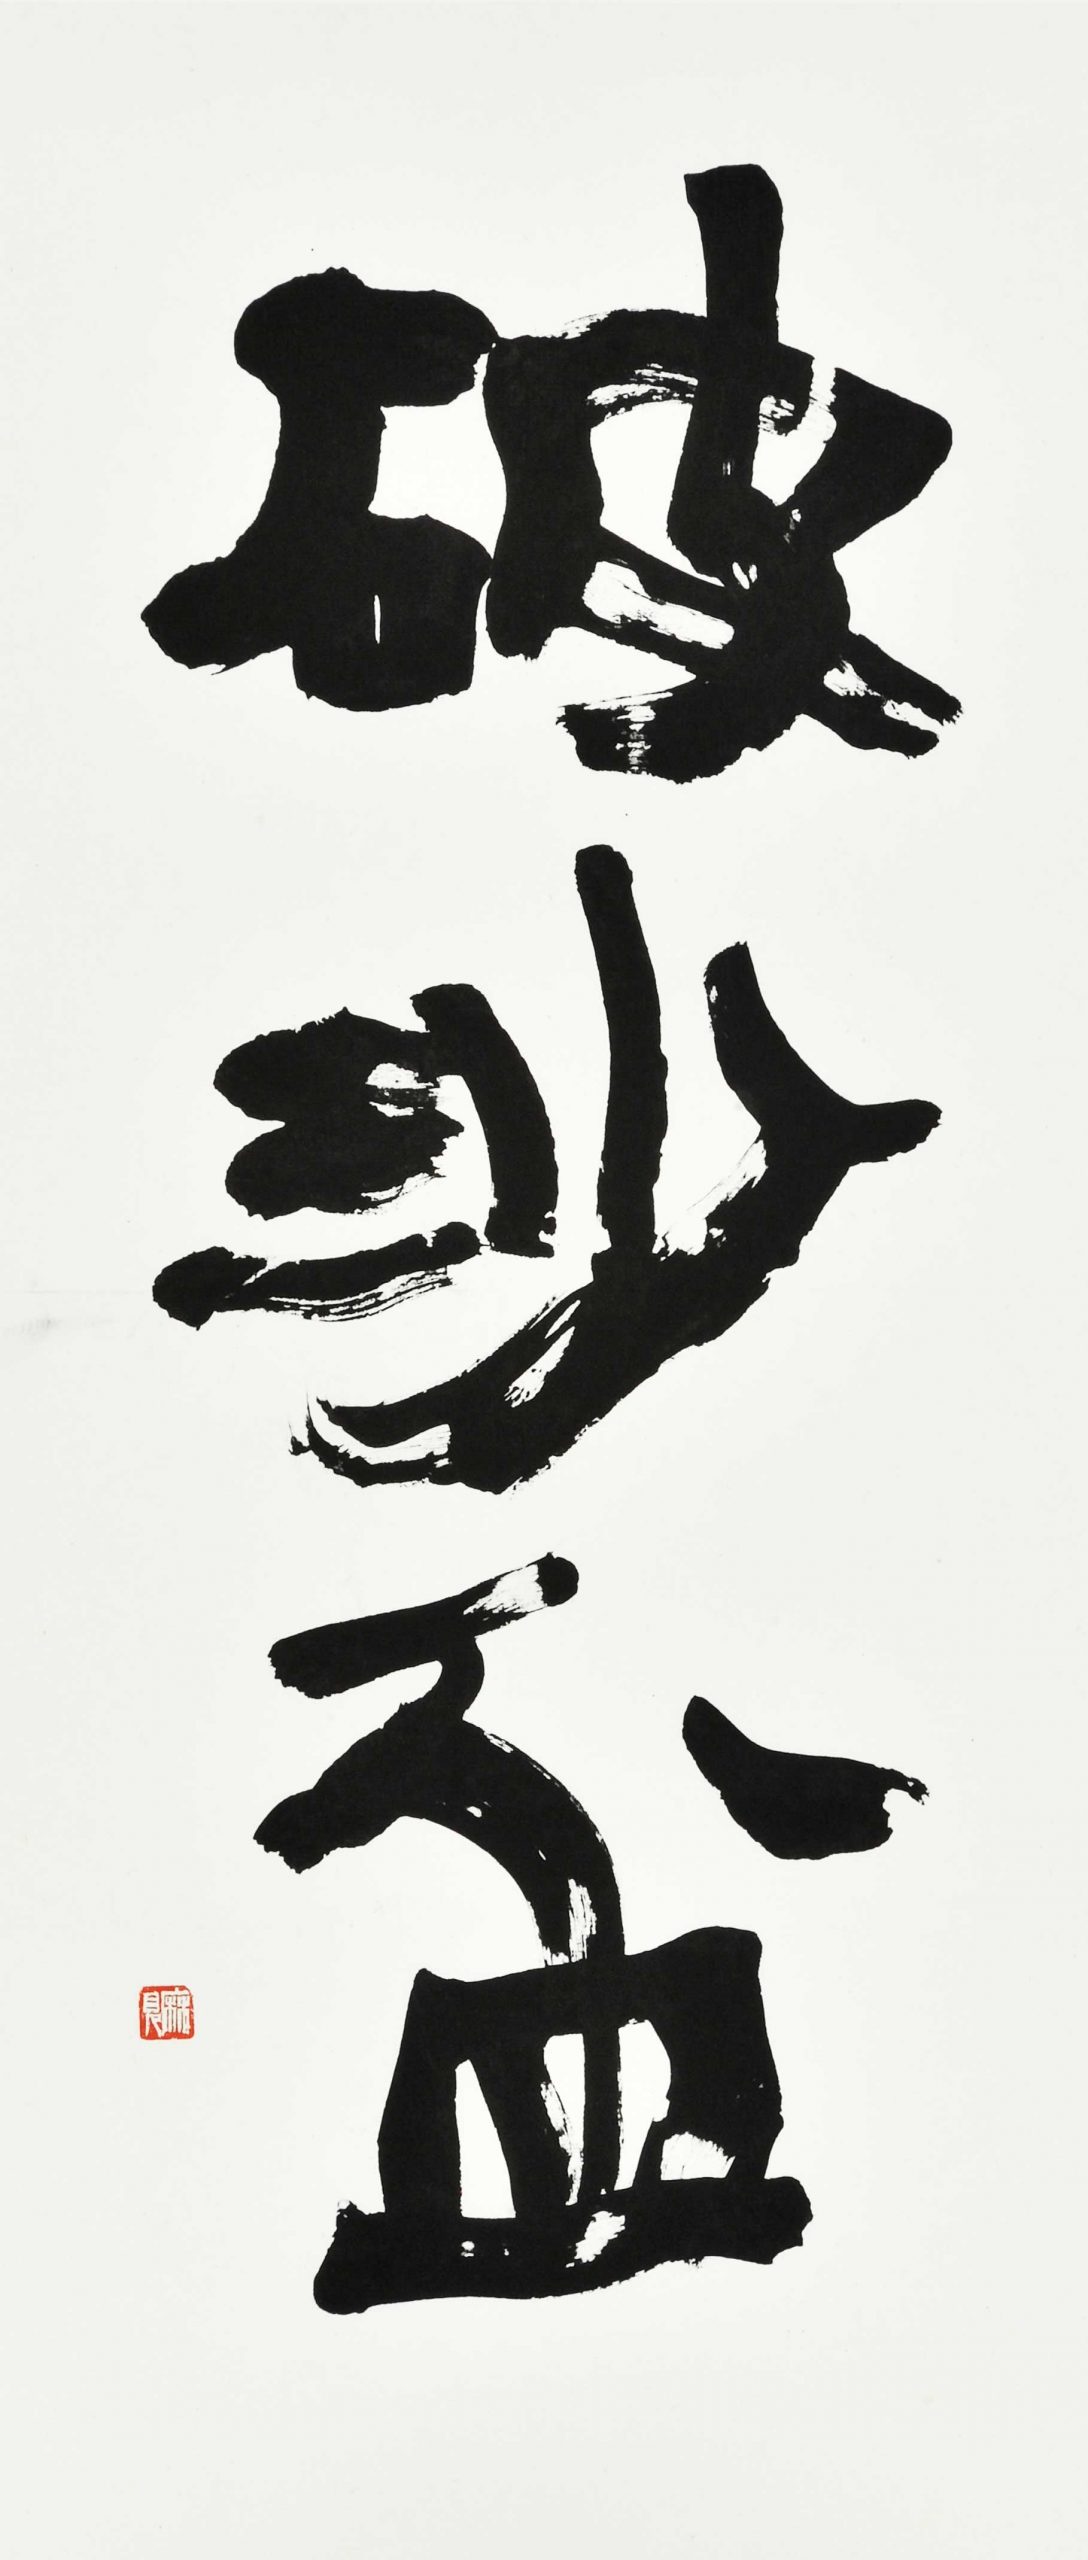 破沙盆